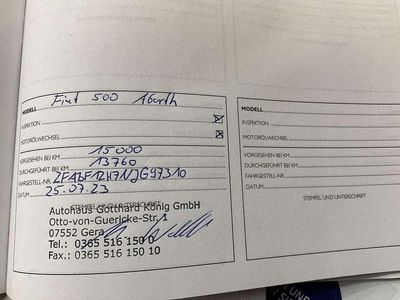 MODELL Fiat 500 Abarth
INSPEKTION
MOTORÖLWECHSEL
VORGESEHEN BEI KM 15000
DURCHGEFÜHRT BEI KM 13760
FAHRGESTELL-NR.
DATUM 25.07.23
STEMPEL UND UNTERSCHRIFT
Autohaus Gotthard König GmbH
Otto-von-Guericke-Str. 1
07552 Gera
Tel.: 0365 516 150 0
Fax.: 0365 516 150 10
MODELL
INSPEKTION
MOTORÖLWECHSEL
VORGESEHEN BEI KM
DURCHGEFÜHRT BEI KM
FAHRGESTELL-NR.
DATUM
STEMPEL UND UNTERSCHRIFT